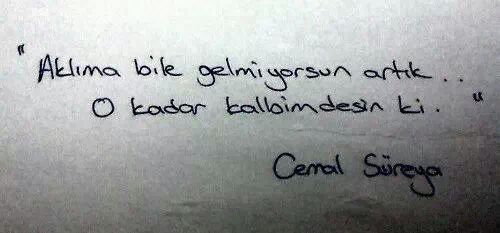 " Aklıma bile gelmiyorsun artık . .
O kadar kalbimdesin ki . "
Cemal Süreya